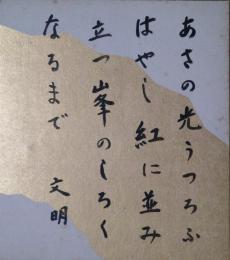 あさの光うつろふ
はやし紅に並み
立つ峯のしろく
なるまで 文明